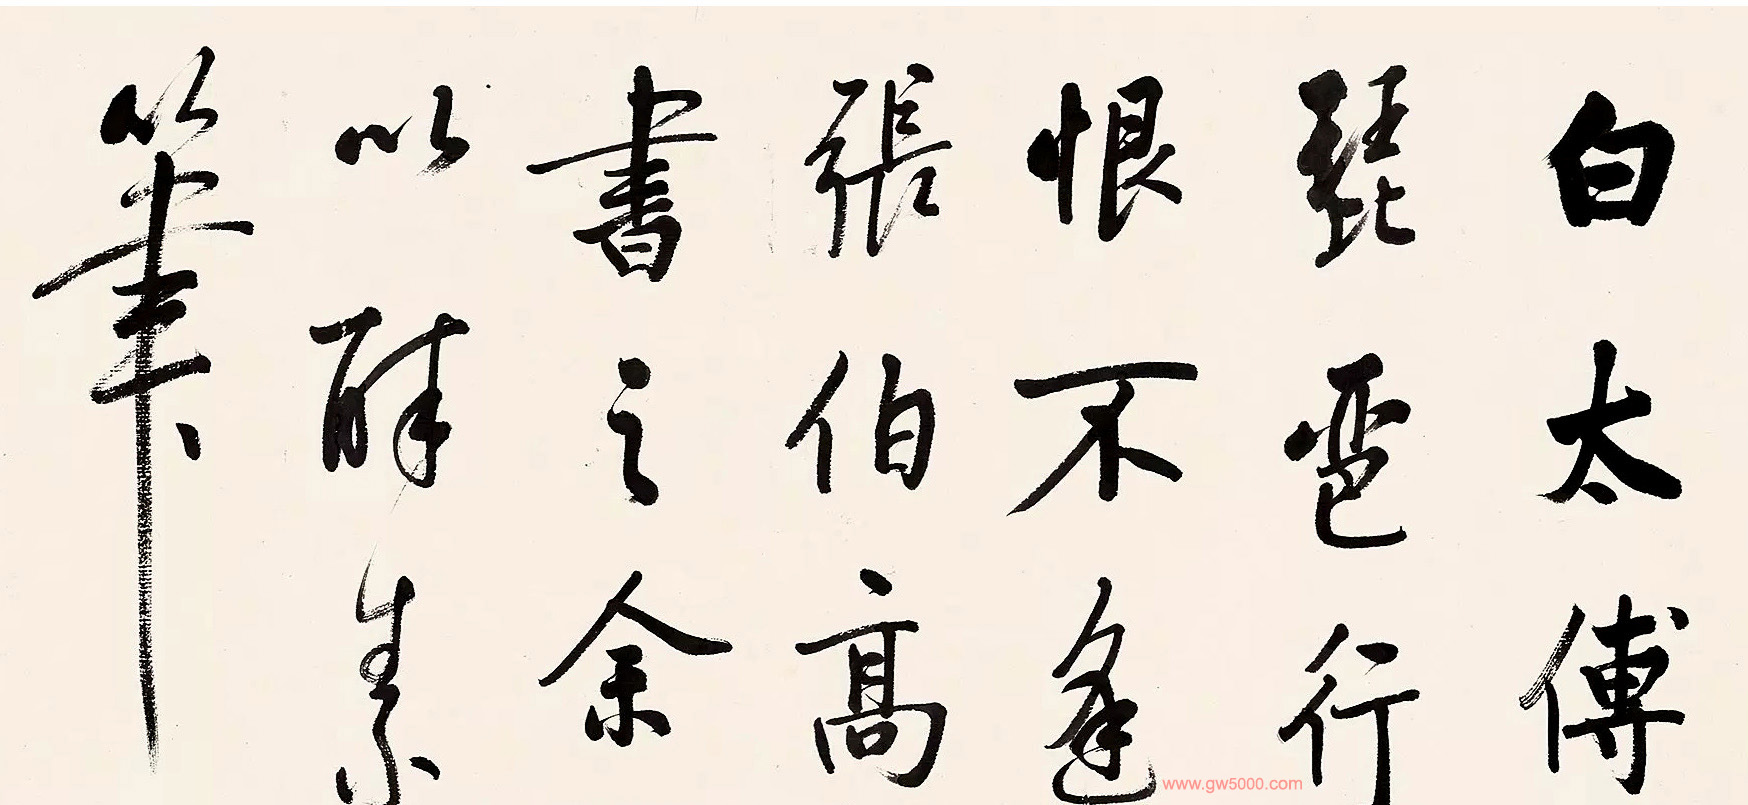 白太傅
琵琶行
恨不逢
張伯高
書之余
以醉素
筆、
www.gw5000.com